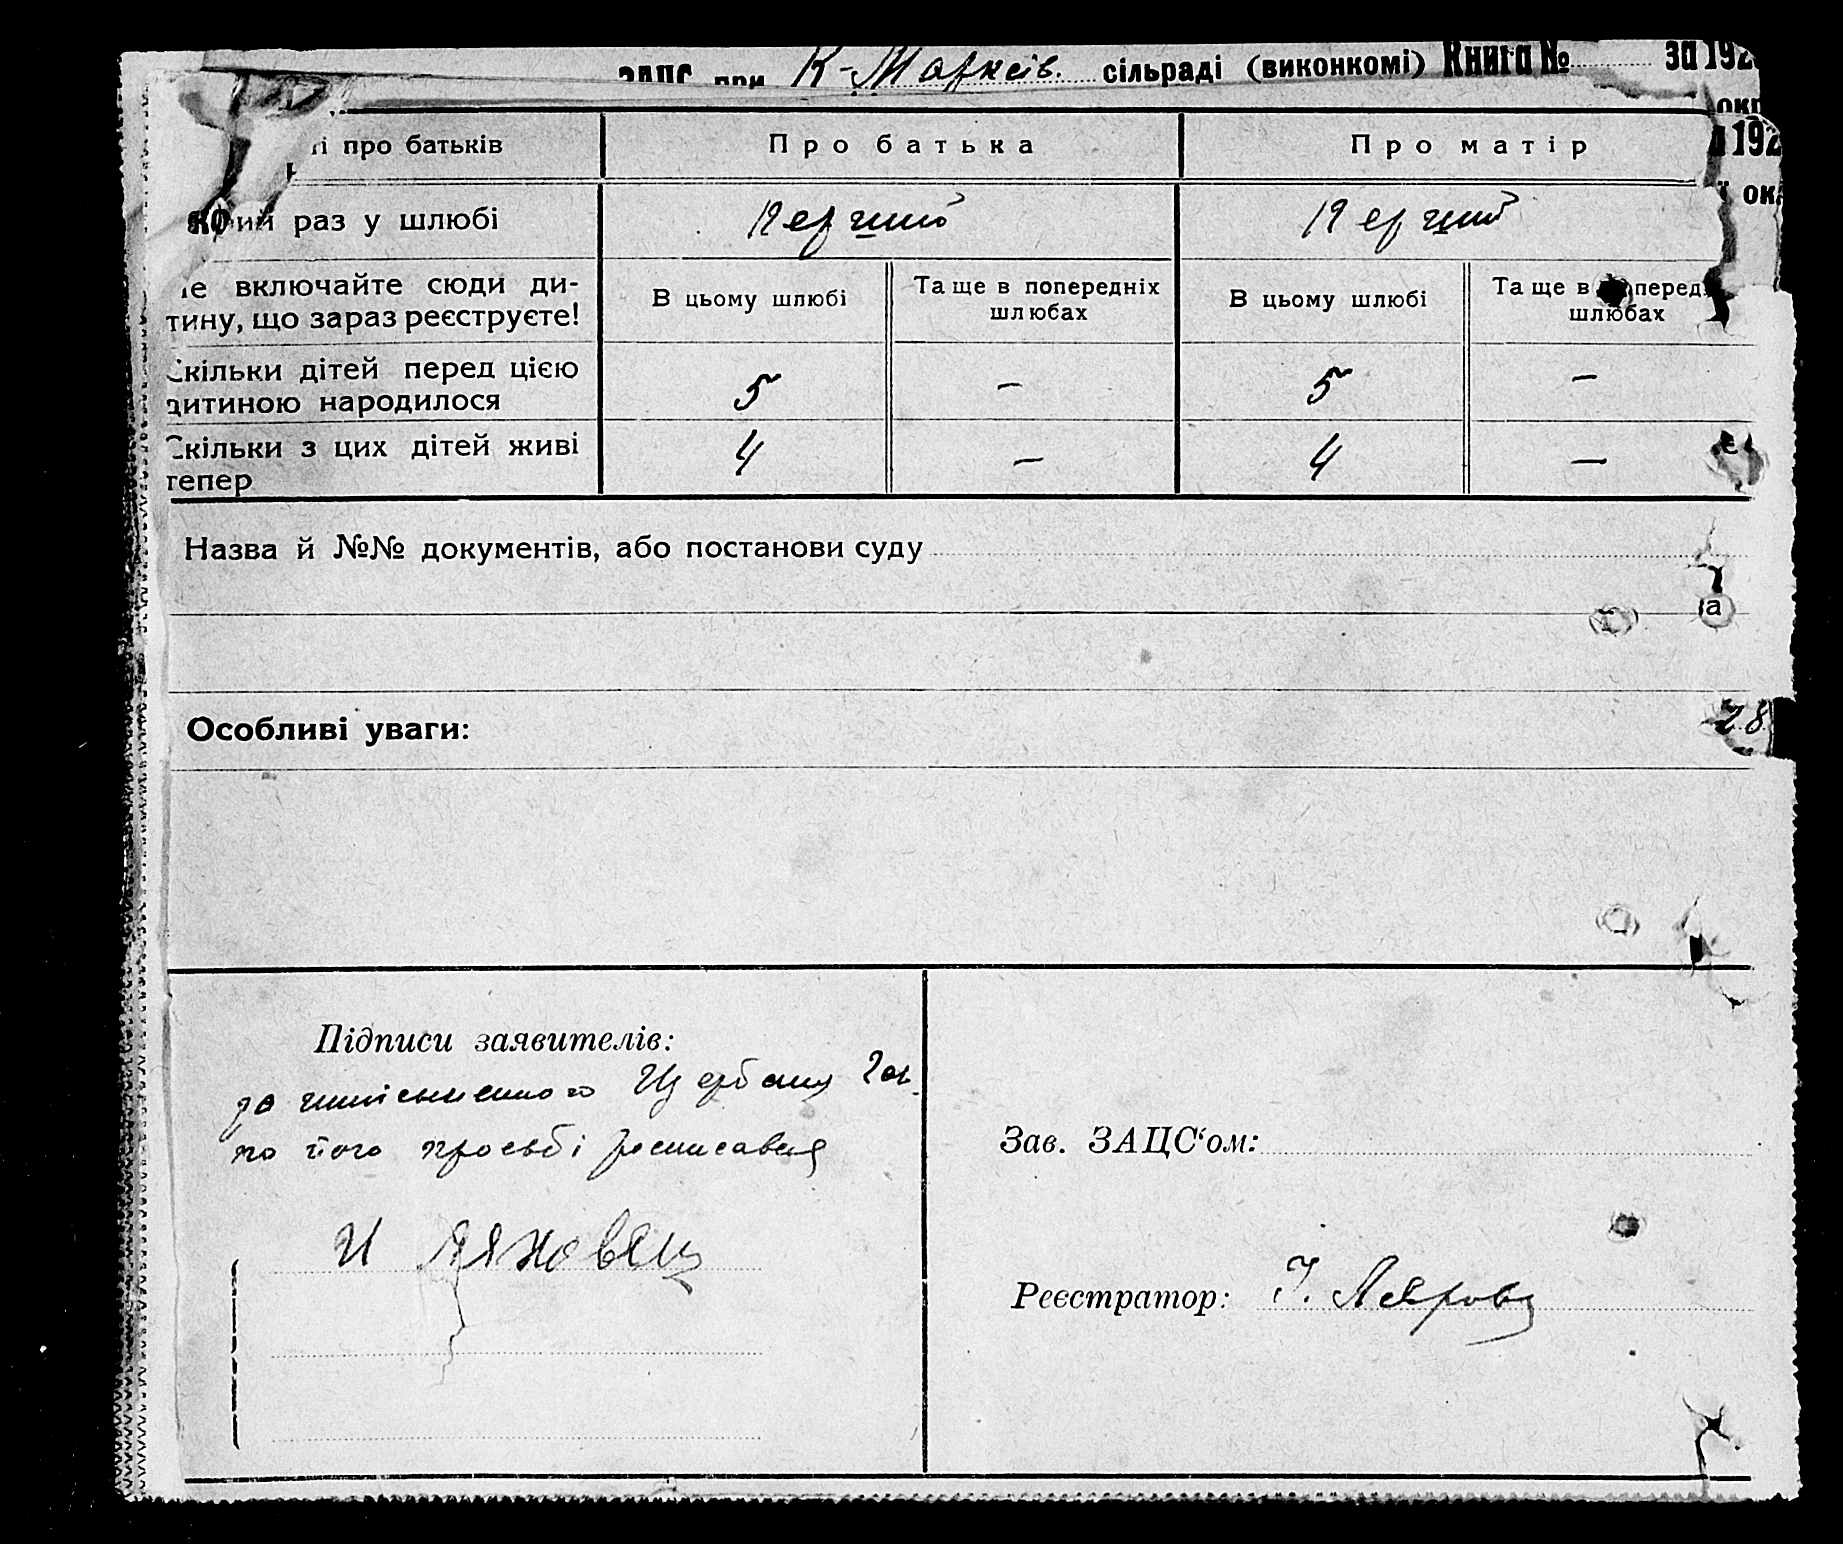 ЗАЦС при К-Марксів. сільраді (виконкомі) Книга № за 192
окр
192
ок
і про батьків
Про батька
Про матір
який раз у шлюбі
Перший
Перший
не включайте сюди ди-
тину, що зараз реєструєте!
В цьому шлюбі
Та ще в попередніх
шлюбах
В цьому шлюбі
Та ще в поперед
шлюбах
Скільки дітей перед цією
дитиною народилося
5
—
5
—
Скільки з цих дітей живі
тепер
4
—
4
—
Назва й №№ документів, або постанови суду
а
Особливі уваги:
28
Підписи заявителів:
за неписьменного Щербину
по його просьбі росписавсь
И Ляховец
Зав. ЗАЦС‘ом:
Реєстратор: І.